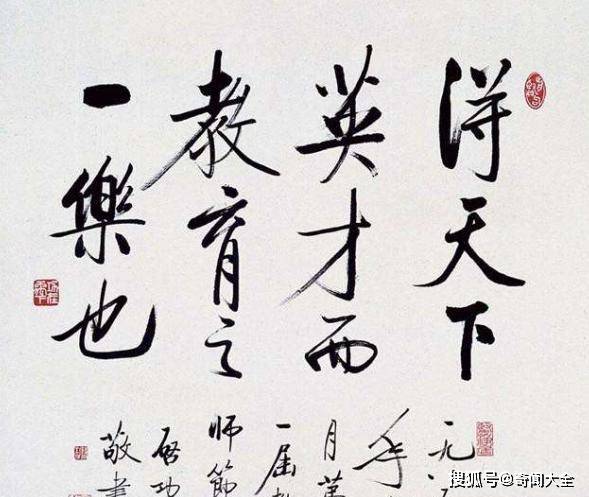 得天下
英才而
教育之
一樂也
一九
年
月第
一届
師節
啓功
敬書
搜狐号@奇闻大全